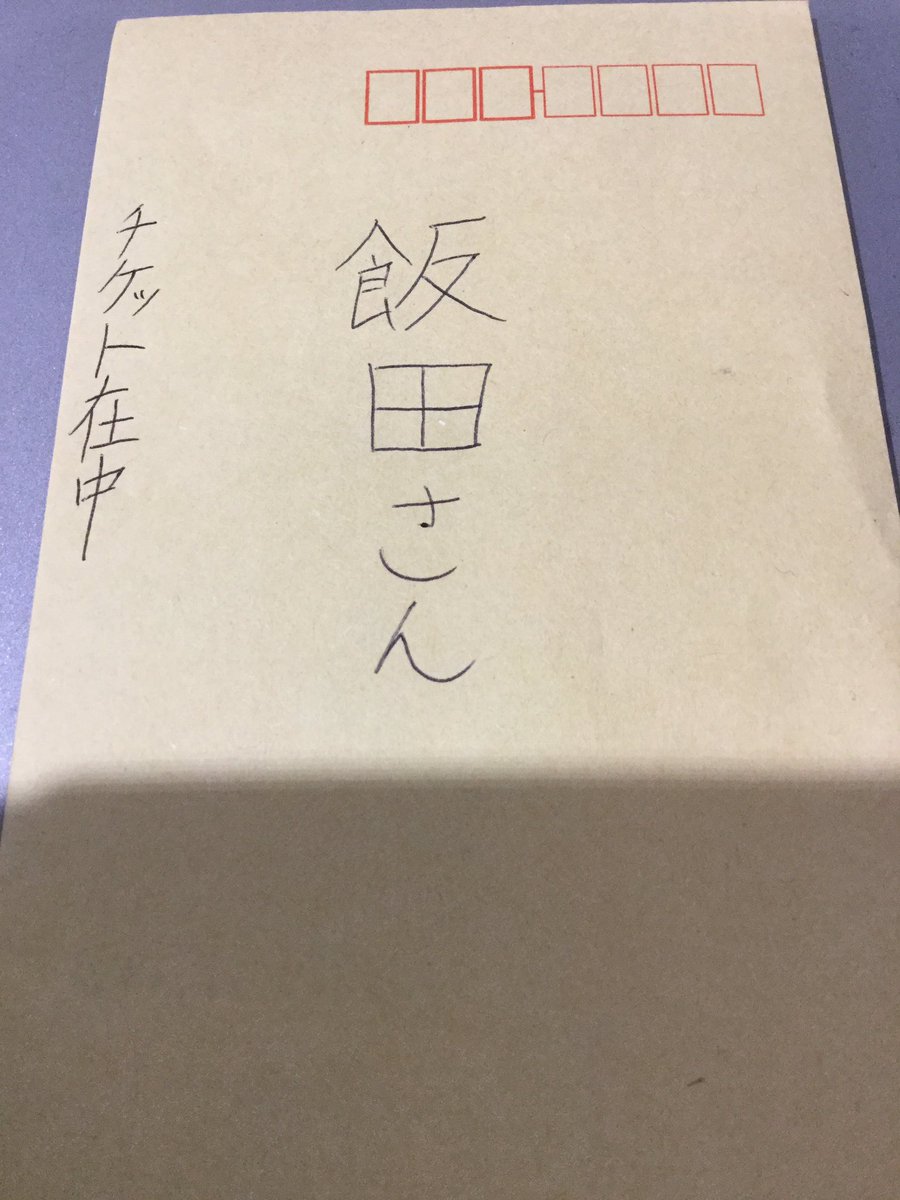 飯田さん
チケット在中